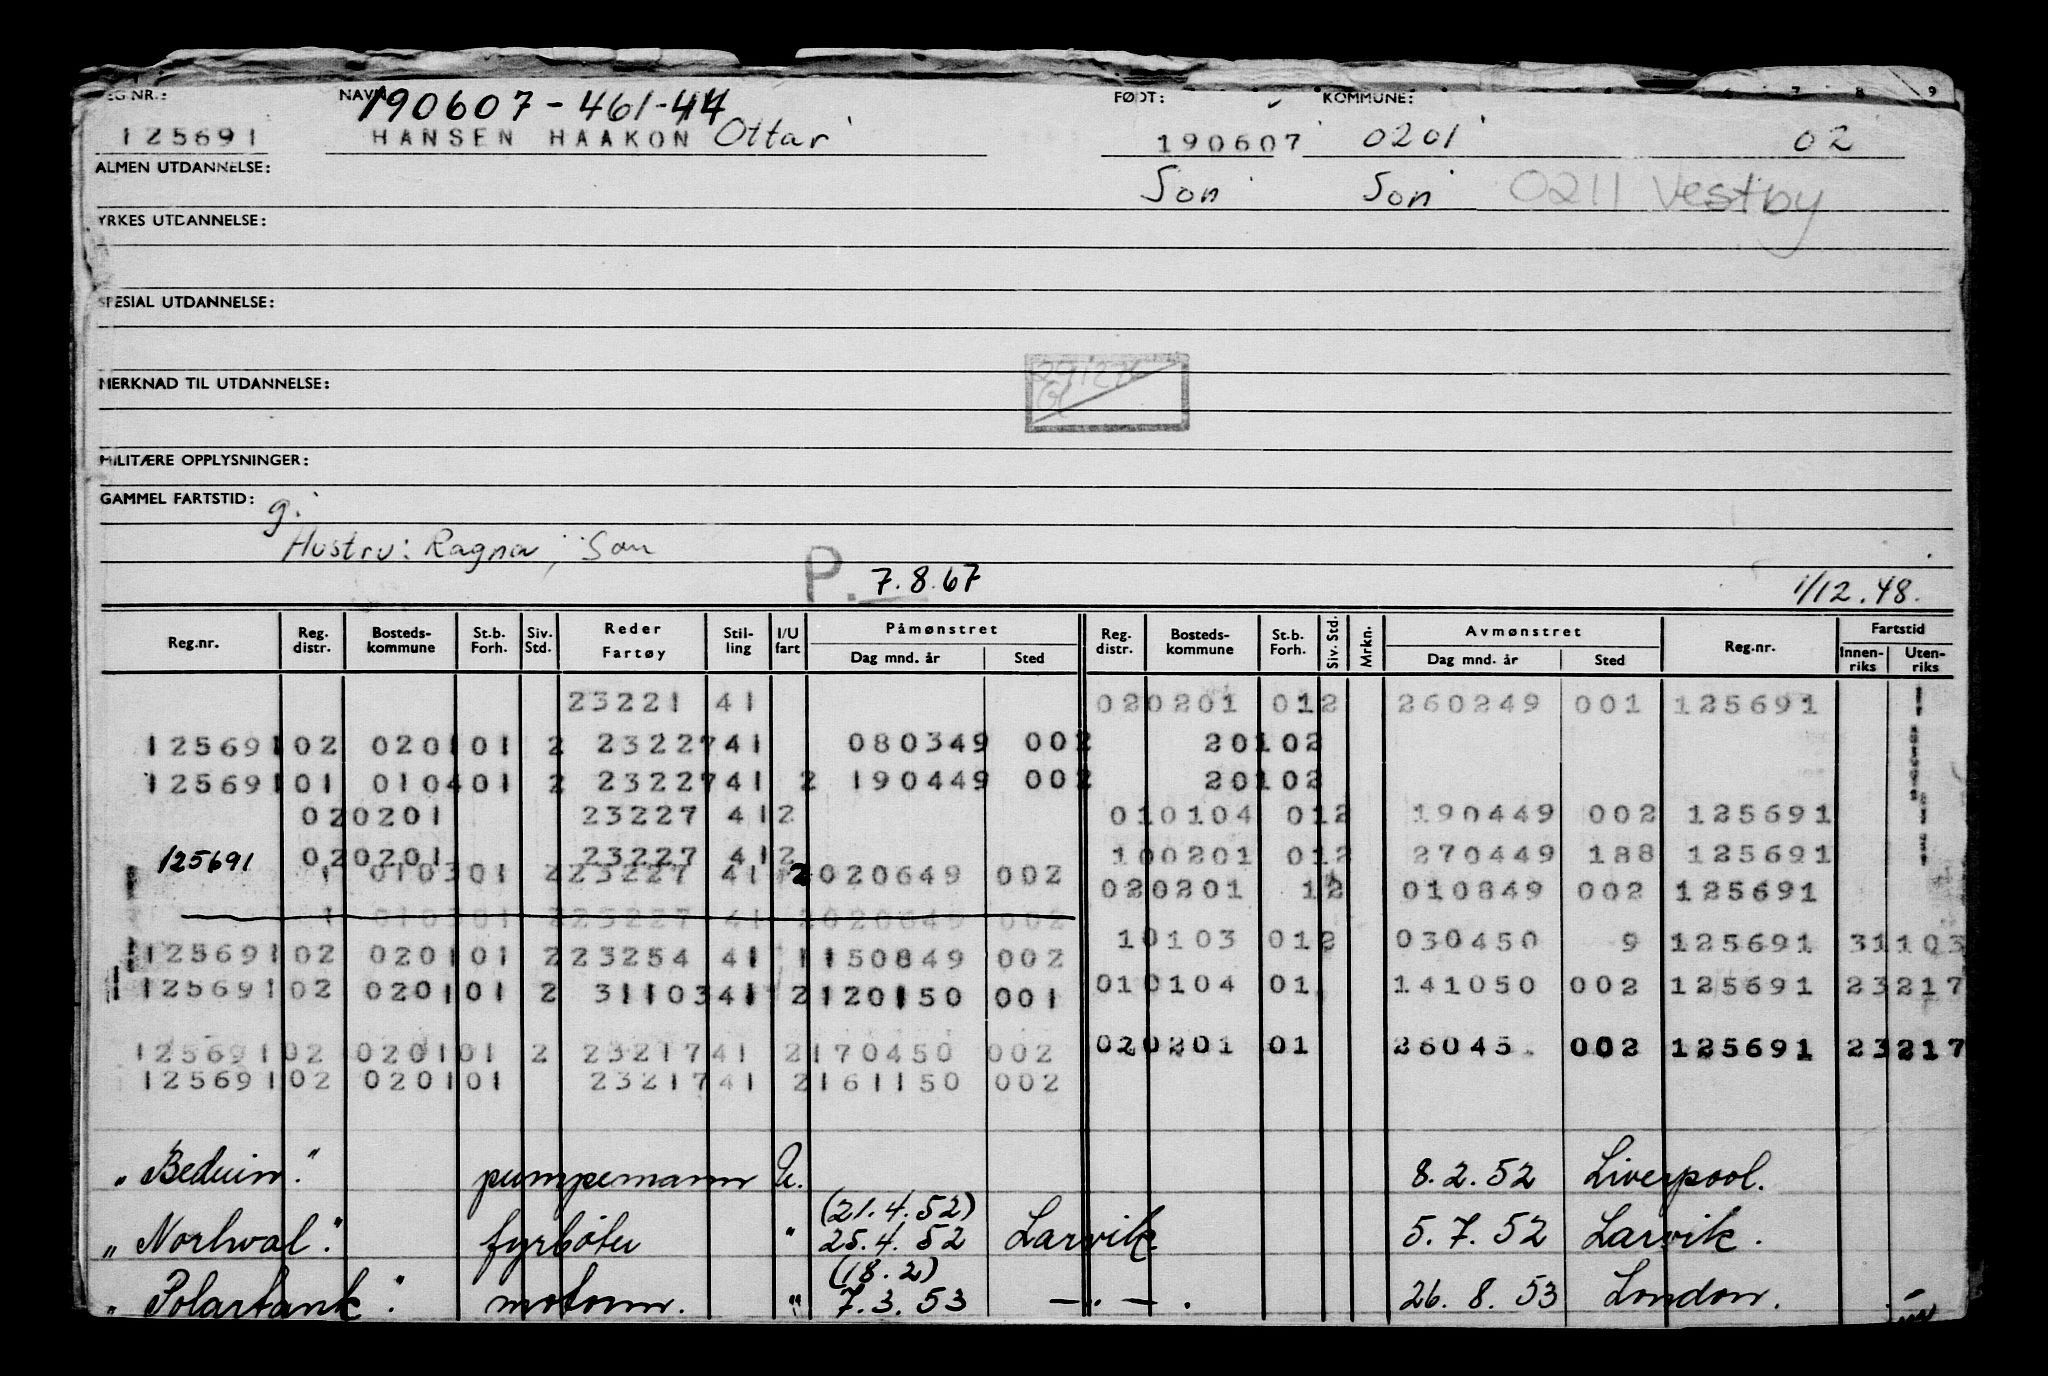 190607-461-44
EG NR.: NAVN FØDT: KOMMUNE: 6 7 8 9
125691 HANSEN HAAKON Ottar 190607 0201 02
ALMEN UTDANNELSE: Son Son 0211 Vestby
YRKES UTDANNELSE:
SPESIAL UTDANNELSE:
MERKNAD TIL UTDANNELSE:
MILITÆRE OPPLYSNINGER:
GAMMEL FARTSTID: g.
Hustru: Ragna, Son
P. 7.8.67 1/12.48.
Reg.nr. Reg. distr. Bosteds- kommune St.b. Forh. Siv. Std. Reder Fartøy Stil- ling I/U fart Påmønstret Dag mnd. år Sted Reg. distr. Bosteds- kommune St.b. Forh. Siv. Std. Mrkn. Avmønstret Dag mnd. år Sted Reg.nr. Fartstid Innen- riks Uten- riks
23221 41 020201 012 260249 001 125691
12569102 020101 2 2322741 080349 002 20102
12569101 010401 2 2322741 2 190449 002 20102
020201 23227 412 010104 012 190449 002 125691
125691 020201 23227 412 100201 012 270449 188 125691
1 010301 223227 41 2020649 002 020201 12 010849 002 125691
1 010301 223227 41 2020649 002
10103 012 030450 9 125691 31103
12569102 020101 223254 41 1150849 002
12569102 020101 2 3110341 2120150 001 010104 01 141050 002 125691 23217
12569102 020101 2 2321741 2170450 002 020201 01 26045 002 125691 23217
12569102 020101 2321741 2161150 002
„Beduin." pumpemann U. 8.2.52 Liverpool.
(21.4.52)
„Norhval." fyrbøter " 25.4.52 Larvik 5.7.52 Larvik.
(18.2)
„Polartank". motorm. " 7.3.53 —"—. 26.8.53 London.